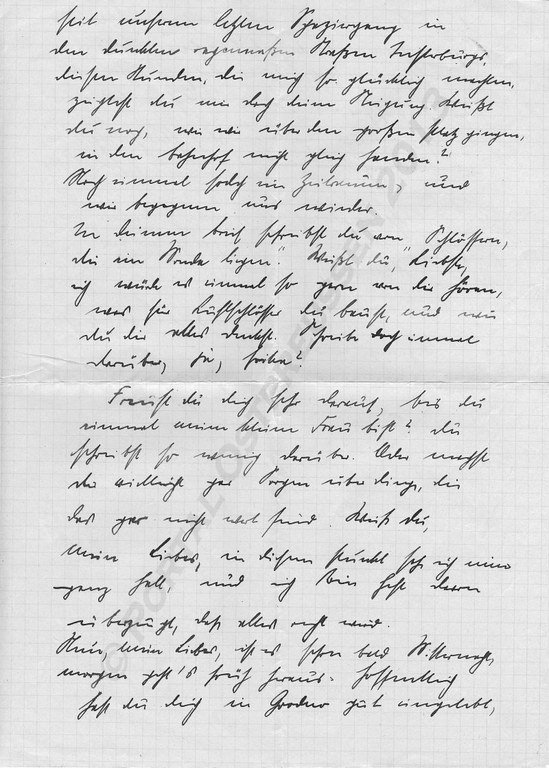 seit unserem letzten Spaziergang in
den dunklen regennassen Straßen Insterburgs,
diesen Stunden, die mich so glücklich machten,
zeigtest du mir doch deine Neigung. Weißt
du noch, wie wir über den großen Platz gingen,
in den Bahnhof nicht gleich fanden?
Noch einmal solch ein Zeitraum, und
wir begegnen uns wieder.
In deinem Brief schreibst du von "Schlössern,
die im Monde liegen". Weißt du, Liebste,
ich würde es einmal so gern von dir hören,
was für Luftschlösser du baust, und wie
du dir alles denkst. Schreibe doch einmal
darüber, ja,
Freust du dich sehr darauf, bis du
einmal meine kleine Frau bist? Du
schreibst so wenig darüber. Oder machst
du vielleicht gar Sorgen über Dinge, die
das gar nicht wert sind. Weißt du,
mein Liebes, in diesem Punkt seh ich nun
ganz hell, und ich bin fest davon
überzeugt, daß alles recht wird.
Nun, mein Liebes, ist es schon bald Mitternacht,
morgen geht's früh heraus. Hoffentlich
hast du dich in Grodno gut eingelebt,
© PORTAL OSTPREUSSEN 2012